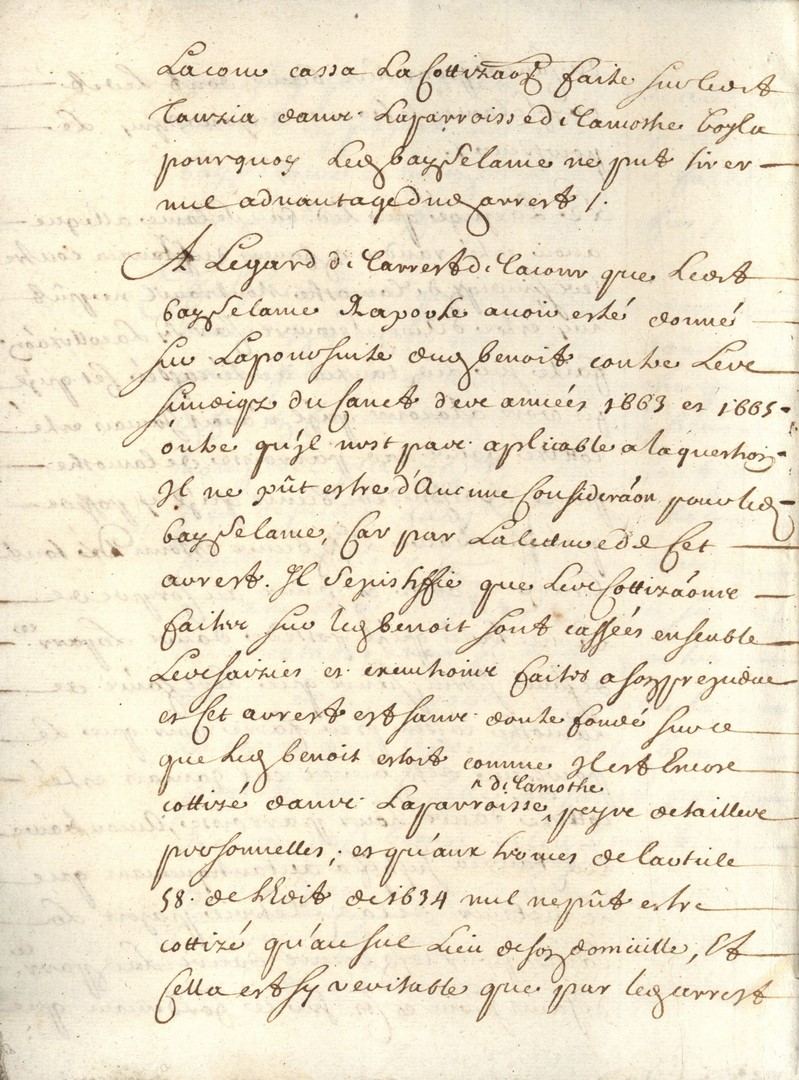 Lacour cassa La Cottizaon faite sur ledit
Tauzia dans Laparroisse de lamothe
pourquoy Led bayselame ne put tirer
nul aduantage dud arrest /.
A Legard de larrest de lacour que Ledit
bayselame Raporte auoir esté donné
sur Lapoursuite dud benoit contre Les
sindiqz du Canet des années 1663 et 1665
outre qu'jl nest pas aplicable a la question
Jl ne pût estre d'Aucune Consideraon pour led
bayselame, Car par La lecture de Cet
arrest. Jl se justiffie que Les Cottizaons
faites sur led benoit sont cassées ensemble
Les saizies et executions faites a son prejudice
et Cet arrest est sans doute fondé sur ce
que led benoit estoit comme Jl est Encore
cottizé dans Laparroisse de lamothe peyre de tailles
personnelles, et qu'aux termes de larticle
58. de lEdit de 1634 nul ne pût estre
cottizé qu'au sul Lieu de son domicille, Et
Cella est sy veritable que par led arrest